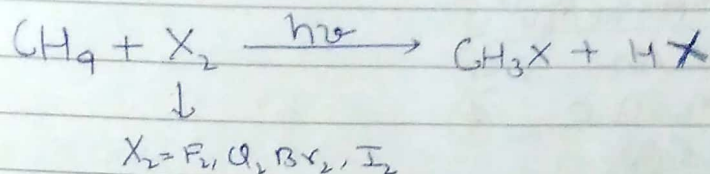 CH₄ + X₂ —hν→ CH₃X + HX
↓
X₂ = F₂, Cl₂ Br₂, I₂